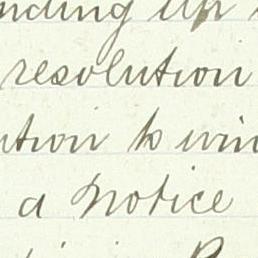 nding up
resolution
ution to win
a Notice